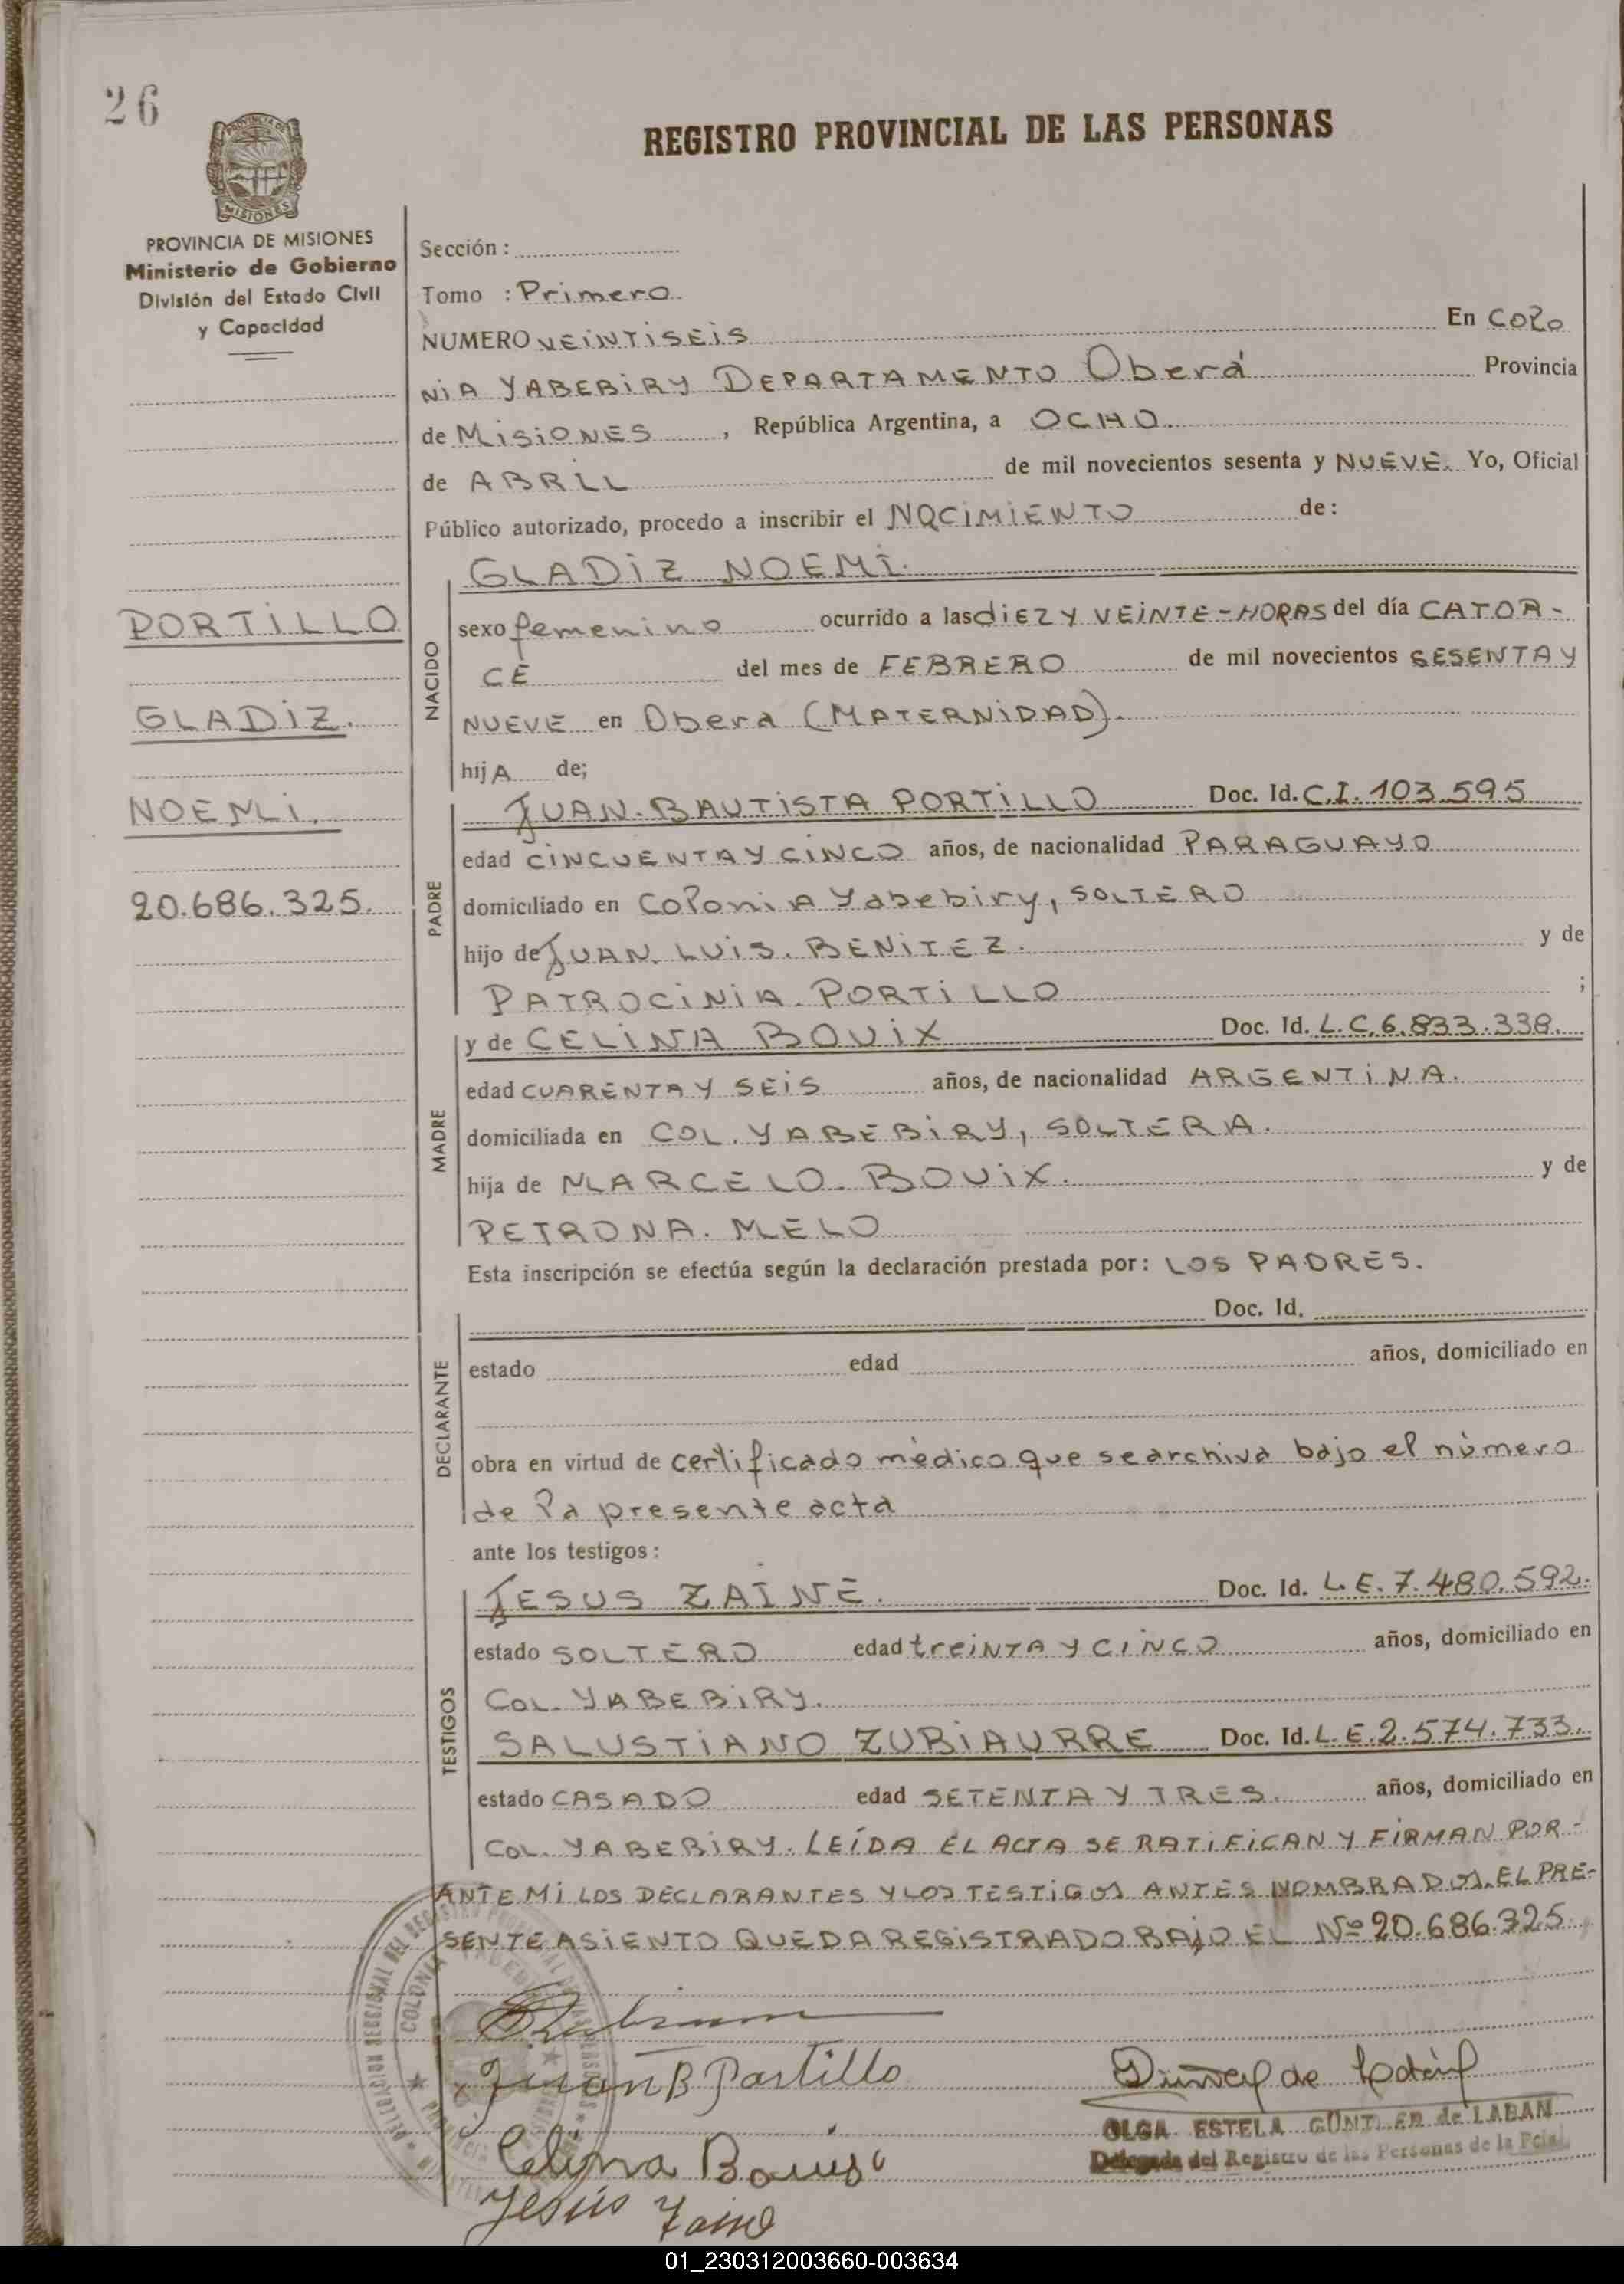 26
REGISTRO PROVINCIAL DE LAS PERSONAS
PROVINCIA DE
MISIONES
PROVINCIA DE MISIONES
Ministerio de Gobierno
División del Estado Civil
y Capacidad
PORTILLO
GLADIZ.
NOEMI.
20.686.325.
Sección :
Tomo : Primero
NUMERO VEINTISEIS En COLO
NIA YABEBIRY DEPARTAMENTO Oberá Provincia
de MISIONES , República Argentina, a OCHO.
de ABRIL de mil novecientos sesenta y NUEVE. Yo, Oficial
Público autorizado, procedo a inscribir el NACIMIENTO de:
NACIDO
GLADIZ NOEMI.
sexo femenino ocurrido a las DIEZ Y VEINTE-HORAS del día CATOR-
CE del mes de FEBRERO de mil novecientos SESENTA Y
NUEVE en Obera (MATERNIDAD).
hijA de;
PADRE
JUAN. BAUTISTA PORTILLO Doc. Id. C.I. 103.595
edad CINCUENTA Y CINCO años, de nacionalidad PARAGUAYO
domiciliado en Colonia Yabebiry, SOLTERO
hijo de JUAN. LUIS. BENITEZ. y de
PATROCINIA. PORTILLO ;
MADRE
y de CELINA BOUIX Doc. Id. L.C. 6.833.338.
edad CUARENTA Y SEIS años, de nacionalidad ARGENTINA.
domiciliada en COL. YABEBIRY, SOLTERA.
hija de MARCELO. BOUIX. y de
PETRONA. MELO
Esta inscripción se efectúa según la declaración prestada por: LOS PADRES.
DECLARANTE
Doc. Id.
estado edad años, domiciliado en
obra en virtud de certificado mèdico que se archiva bajo el nùmero
de la presente acta
ante los testigos :
TESTIGOS
JESUS ZAINE. Doc. Id. L.E. 7.480.592.
estado SOLTERO edad treINTA Y CINCO años, domiciliado en
COL. YABEBIRY.
SALUSTIANO ZUBIAURRE Doc. Id. L.E. 2.574.733.
estado CASADO edad SETENTA Y TRES. años, domiciliado en
COL. YABEBIRY. LEÍDA EL ACTA SE RATIFICAN Y FIRMAN POR-
ANTE MI LOS DECLARANTES Y LOS TESTIGOS ANTES NOMBRADOS. EL PRE-
SENTE ASIENTO QUEDA REGISTRADO BAJO EL Nº 20.686.325.
Juan B Portillo
Celina
Jesús Zaine
OLGA ESTELA de LABAN
Delegada del Registro de las Personas de la Pcia.
COLONIA
01_230312003660-003634